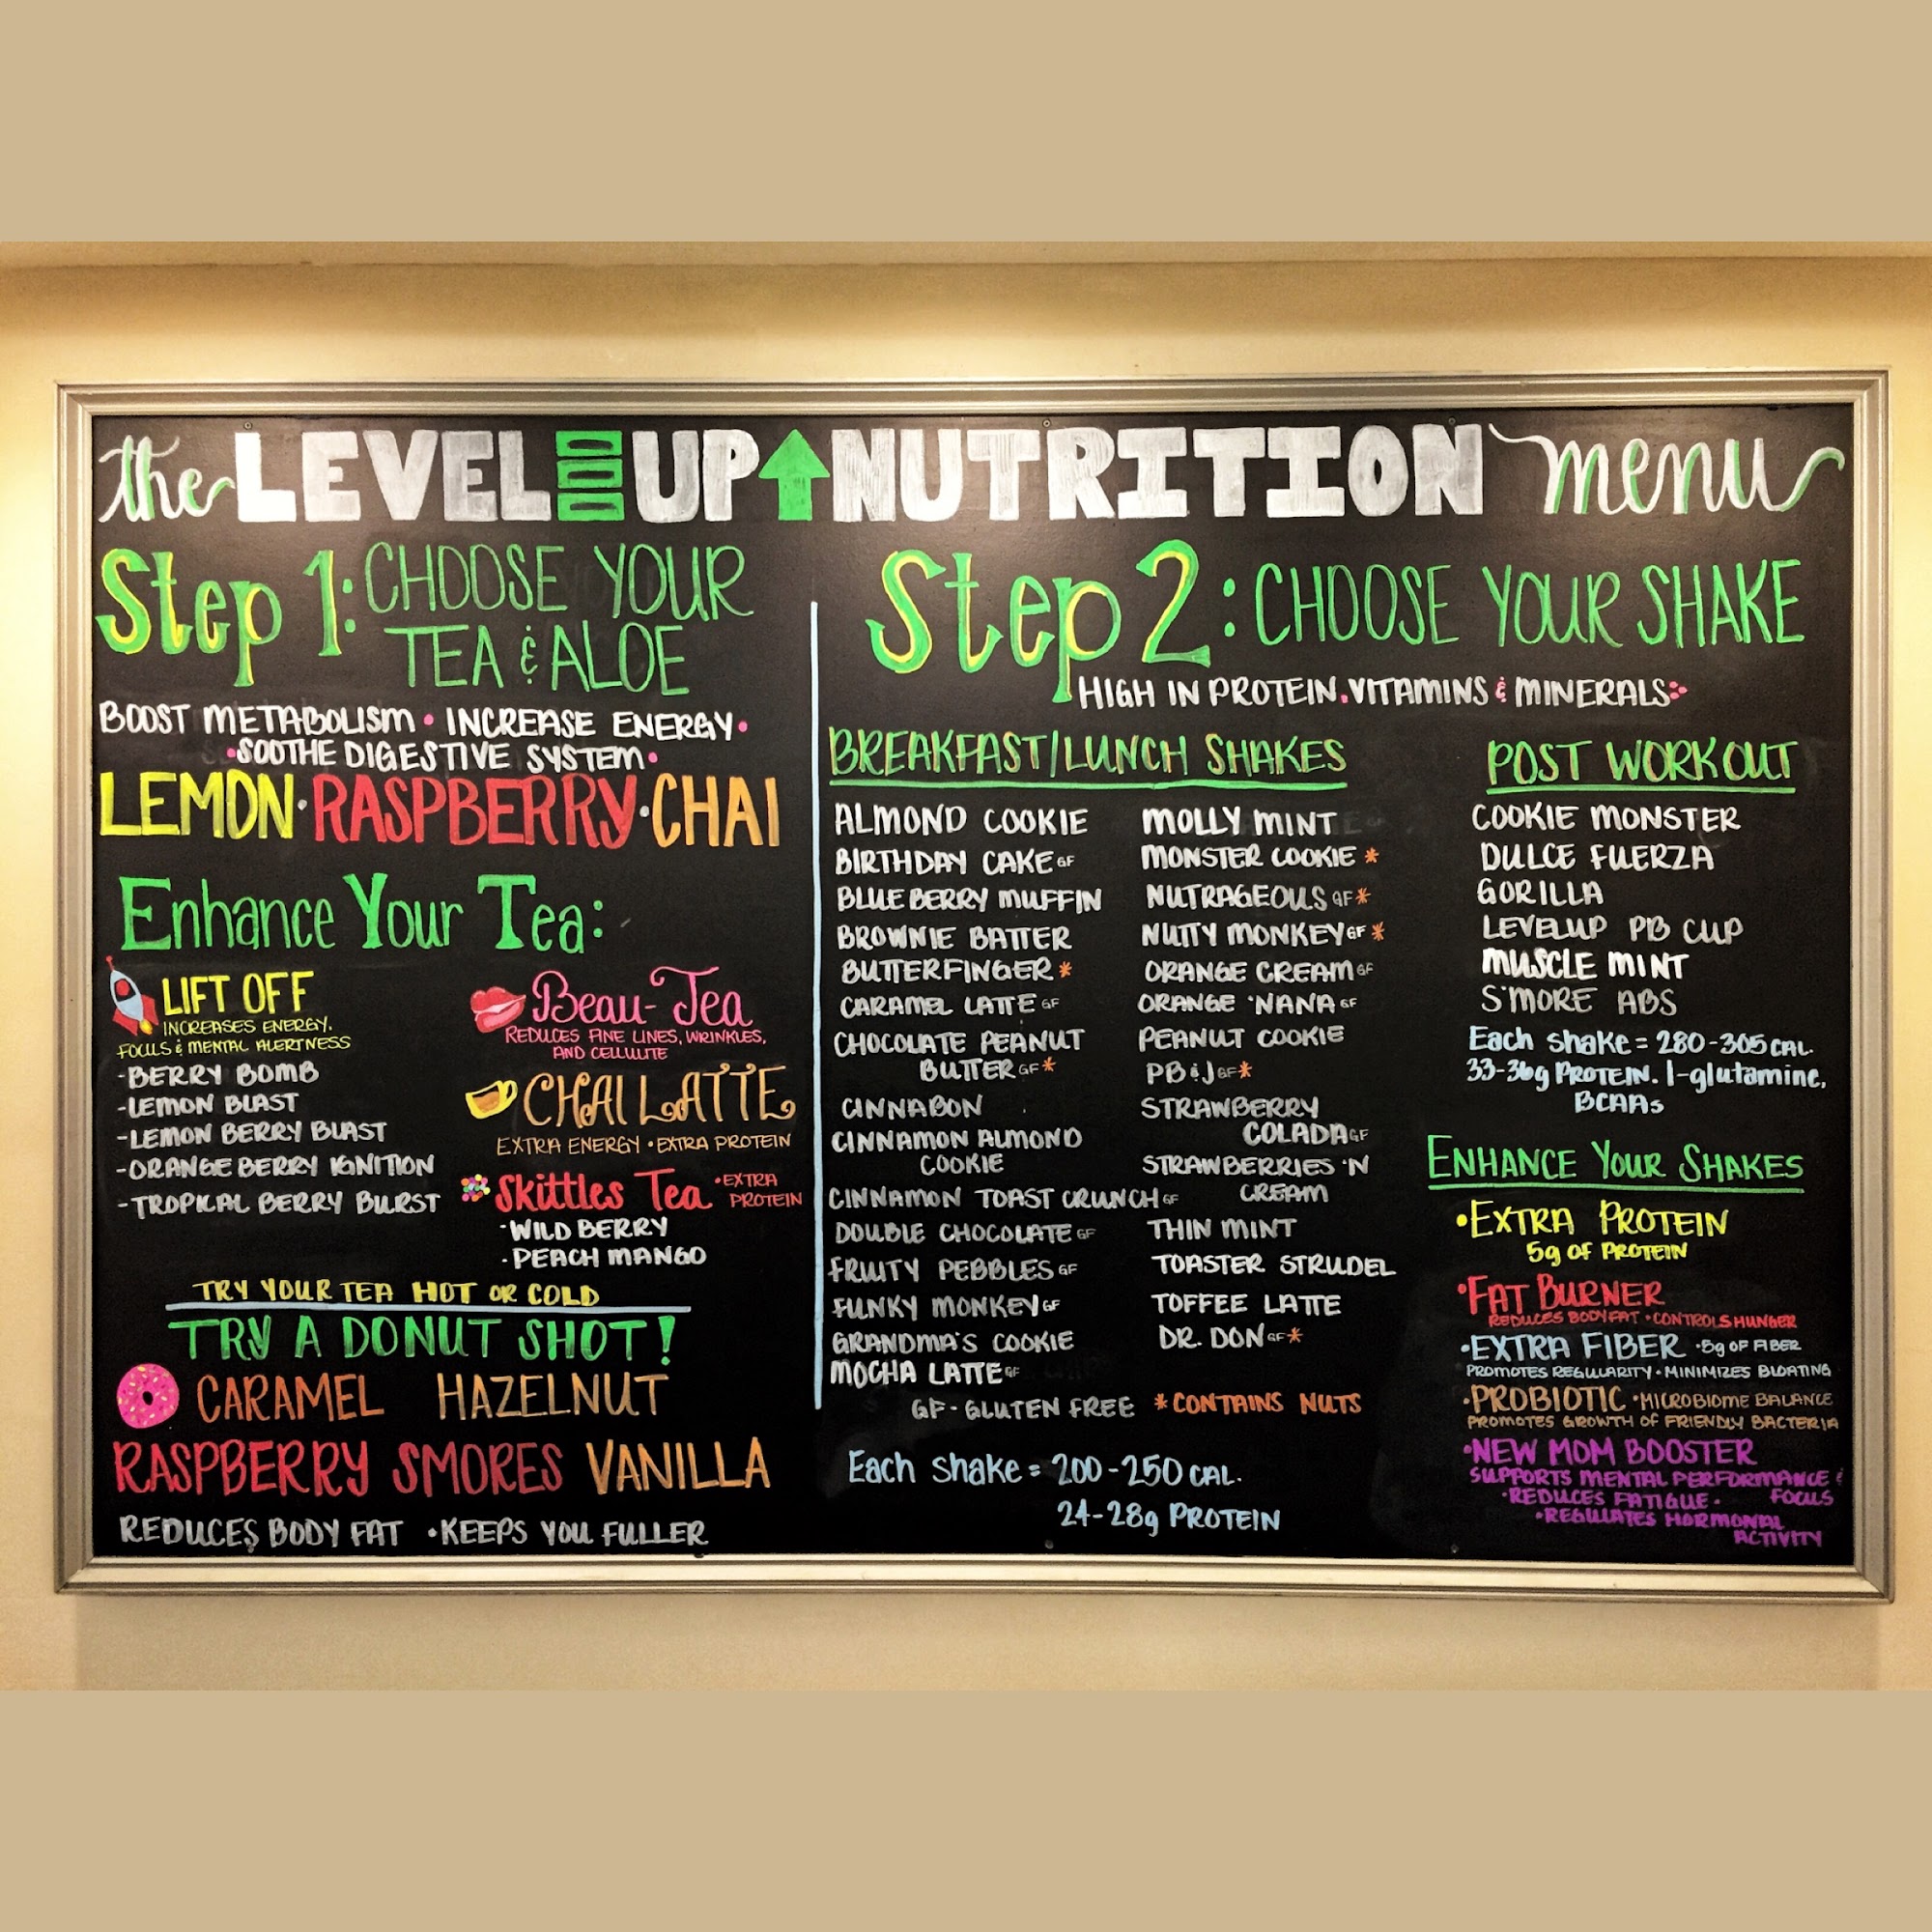 the LEVEL UP NUTRITION menu
Step 1: CHOOSE YOUR
TEA & ALOE
BOOST METABOLISM • INCREASE ENERGY •
• SOOTHE DIGESTIVE SYSTEM •
LEMON • RASPBERRY • CHAI
Enhance Your Tea:
LIFT OFF
INCREASES ENERGY,
FOCUS & MENTAL ALERTNESS
-BERRY BOMB
-LEMON BLAST
-LEMON BERRY BLAST
-ORANGE BERRY IGNITION
-TROPICAL BERRY BURST
Beau-Tea
REDUCES FINE LINES, WRINKLES,
AND CELLULITE
CHAI LATTE
EXTRA ENERGY • EXTRA PROTEIN
Skittles Tea • EXTRA
PROTEIN
• WILD BERRY
• PEACH MANGO
TRY YOUR TEA HOT OR COLD
TRY A DONUT SHOT!
CARAMEL HAZELNUT
RASPBERRY SMORES VANILLA
REDUCES BODY FAT • KEEPS YOU FULLER
Step 2: CHOOSE YOUR SHAKE
HIGH IN PROTEIN • VITAMINS & MINERALS
BREAKFAST/LUNCH SHAKES
ALMOND COOKIE
BIRTHDAY CAKE GF
BLUEBERRY MUFFIN
BROWNIE BATTER
BUTTERFINGER *
CARAMEL LATTE GF
CHOCOLATE PEANUT
BUTTER GF *
CINNABON
CINNAMON ALMOND
COOKIE
CINNAMON TOAST CRUNCH GF
DOUBLE CHOCOLATE GF
FRUITY PEBBLES GF
FUNKY MONKEY GF
GRANDMA'S COOKIE
MOCHA LATTE GF
MOLLY MINT
MONSTER COOKIE *
NUTRAGEOUS GF *
NUTTY MONKEY GF *
ORANGE CREAM GF
ORANGE 'NANA GF
PEANUT COOKIE
PB & J GF *
STRAWBERRY
COLADA GF
STRAWBERRIES 'N
CREAM
THIN MINT
TOASTER STRUDEL
TOFFEE LATTE
DR. DON GF *
GF - GLUTEN FREE * CONTAINS NUTS
Each shake = 200-250 CAL.
24-28g PROTEIN
POST WORKOUT
COOKIE MONSTER
DULCE FUERZA
GORILLA
LEVELUP PB CUP
MUSCLE MINT
S'MORE ABS
Each shake = 280-305 CAL.
33-36g PROTEIN. l-glutamine,
BCAAs
ENHANCE YOUR SHAKES
• EXTRA PROTEIN
5g OF PROTEIN
• FAT BURNER
REDUCES BODY FAT • CONTROLS HUNGER
• EXTRA FIBER • 5g OF FIBER
PROMOTES REGULARITY • MINIMIZES BLOATING
• PROBIOTIC • MICROBIOME BALANCE
PROMOTES GROWTH OF FRIENDLY BACTERIA
• NEW MOM BOOSTER
SUPPORTS MENTAL PERFORMANCE &
FOCUS
• REDUCES FATIGUE •
• REGULATES HORMONAL
ACTIVITY